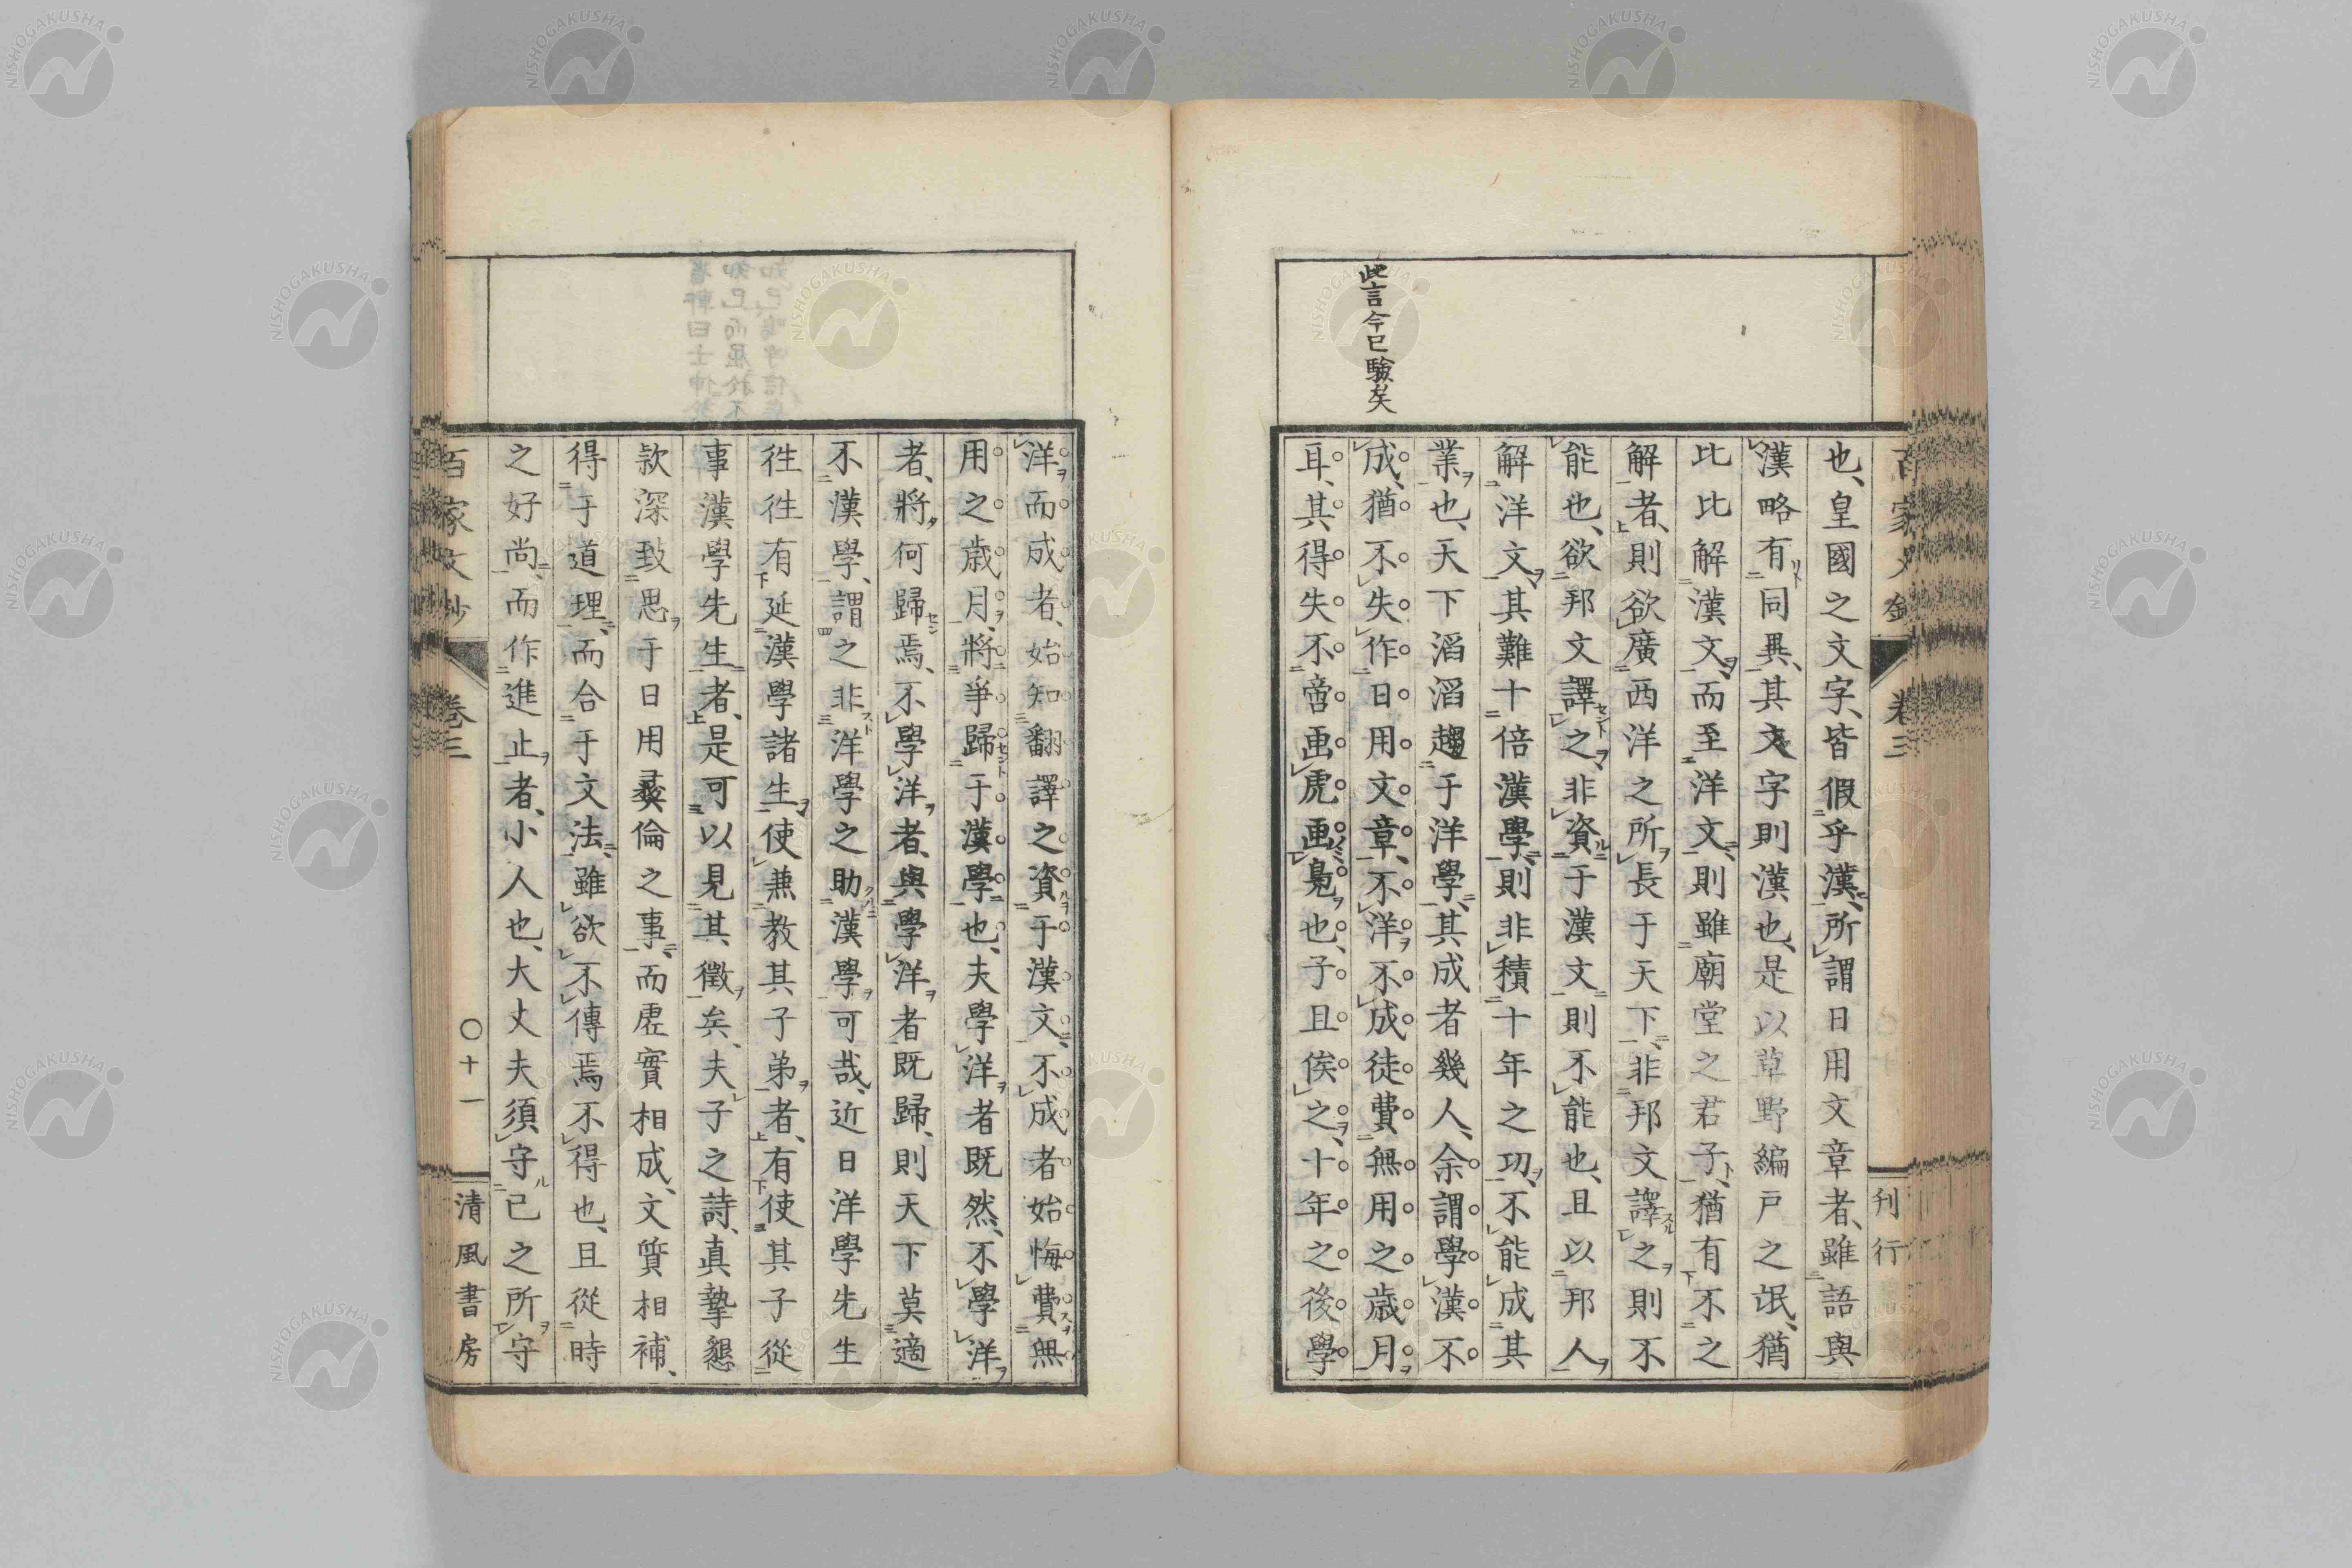 此言今已驗矣
也、皇國之文字、皆假乎漢、所謂日用文章者、雖語與
漢略有同異、其文字則漢也、是以草野編戸之氓、猶
比比解漢文、而至洋文、則雖廟堂之君子、猶有不之
解者、則欲廣西洋之所長于天下、非邦文譯之則不
能也、欲邦文譯之、非資于漢文則不能也、且以邦人
解洋文、其難十倍漢學、則非積十年之功、不能成其
業也、天下滔滔趨于洋學、其成者幾人、余謂學漢不
成、猶不失作日用文章、不洋不成徒費無用之歳月、
耳、其得失不啻画虎画鳧也、子且俟之、十年之後學
刊行
洋而成者、始知翻譯之資于漢文、不成者始悔費無
用之歳月、將爭歸于漢學也、夫學洋者既然、不學洋
者、將何歸焉、不學洋者、與學洋者既歸、則天下莫適
不漢學、謂之非洋學之助漢學可哉、近日洋學先生
往往有延漢學諸生、使兼教其子弟者、有使其子從
事漢學先生者、是可以見其徵矣、夫子之詩、真摯懇
款深致思于日用彛倫之事、而虚實相成、文質相補、
得于道理、而合于文法、雖欲不傳焉不得也、且從時
之好尚、而作進止者、小人也、大丈夫須守已之所守
百家文抄
卷三
〇十一
清風書房